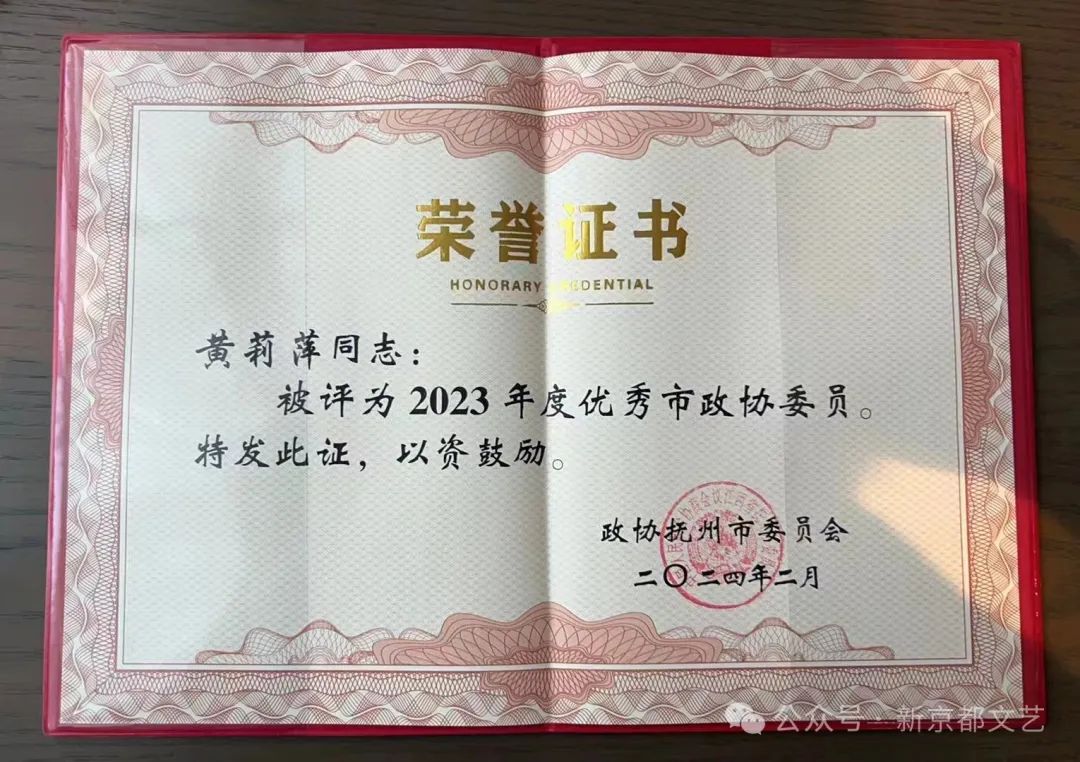 荣誉证书
HONORARY CREDENTIAL
黄莉萍同志：
被评为2023年度优秀市政协委员。
特发此证，以资鼓励。
政协抚州市委员会
二〇二四年二月
公众号·新京都文艺